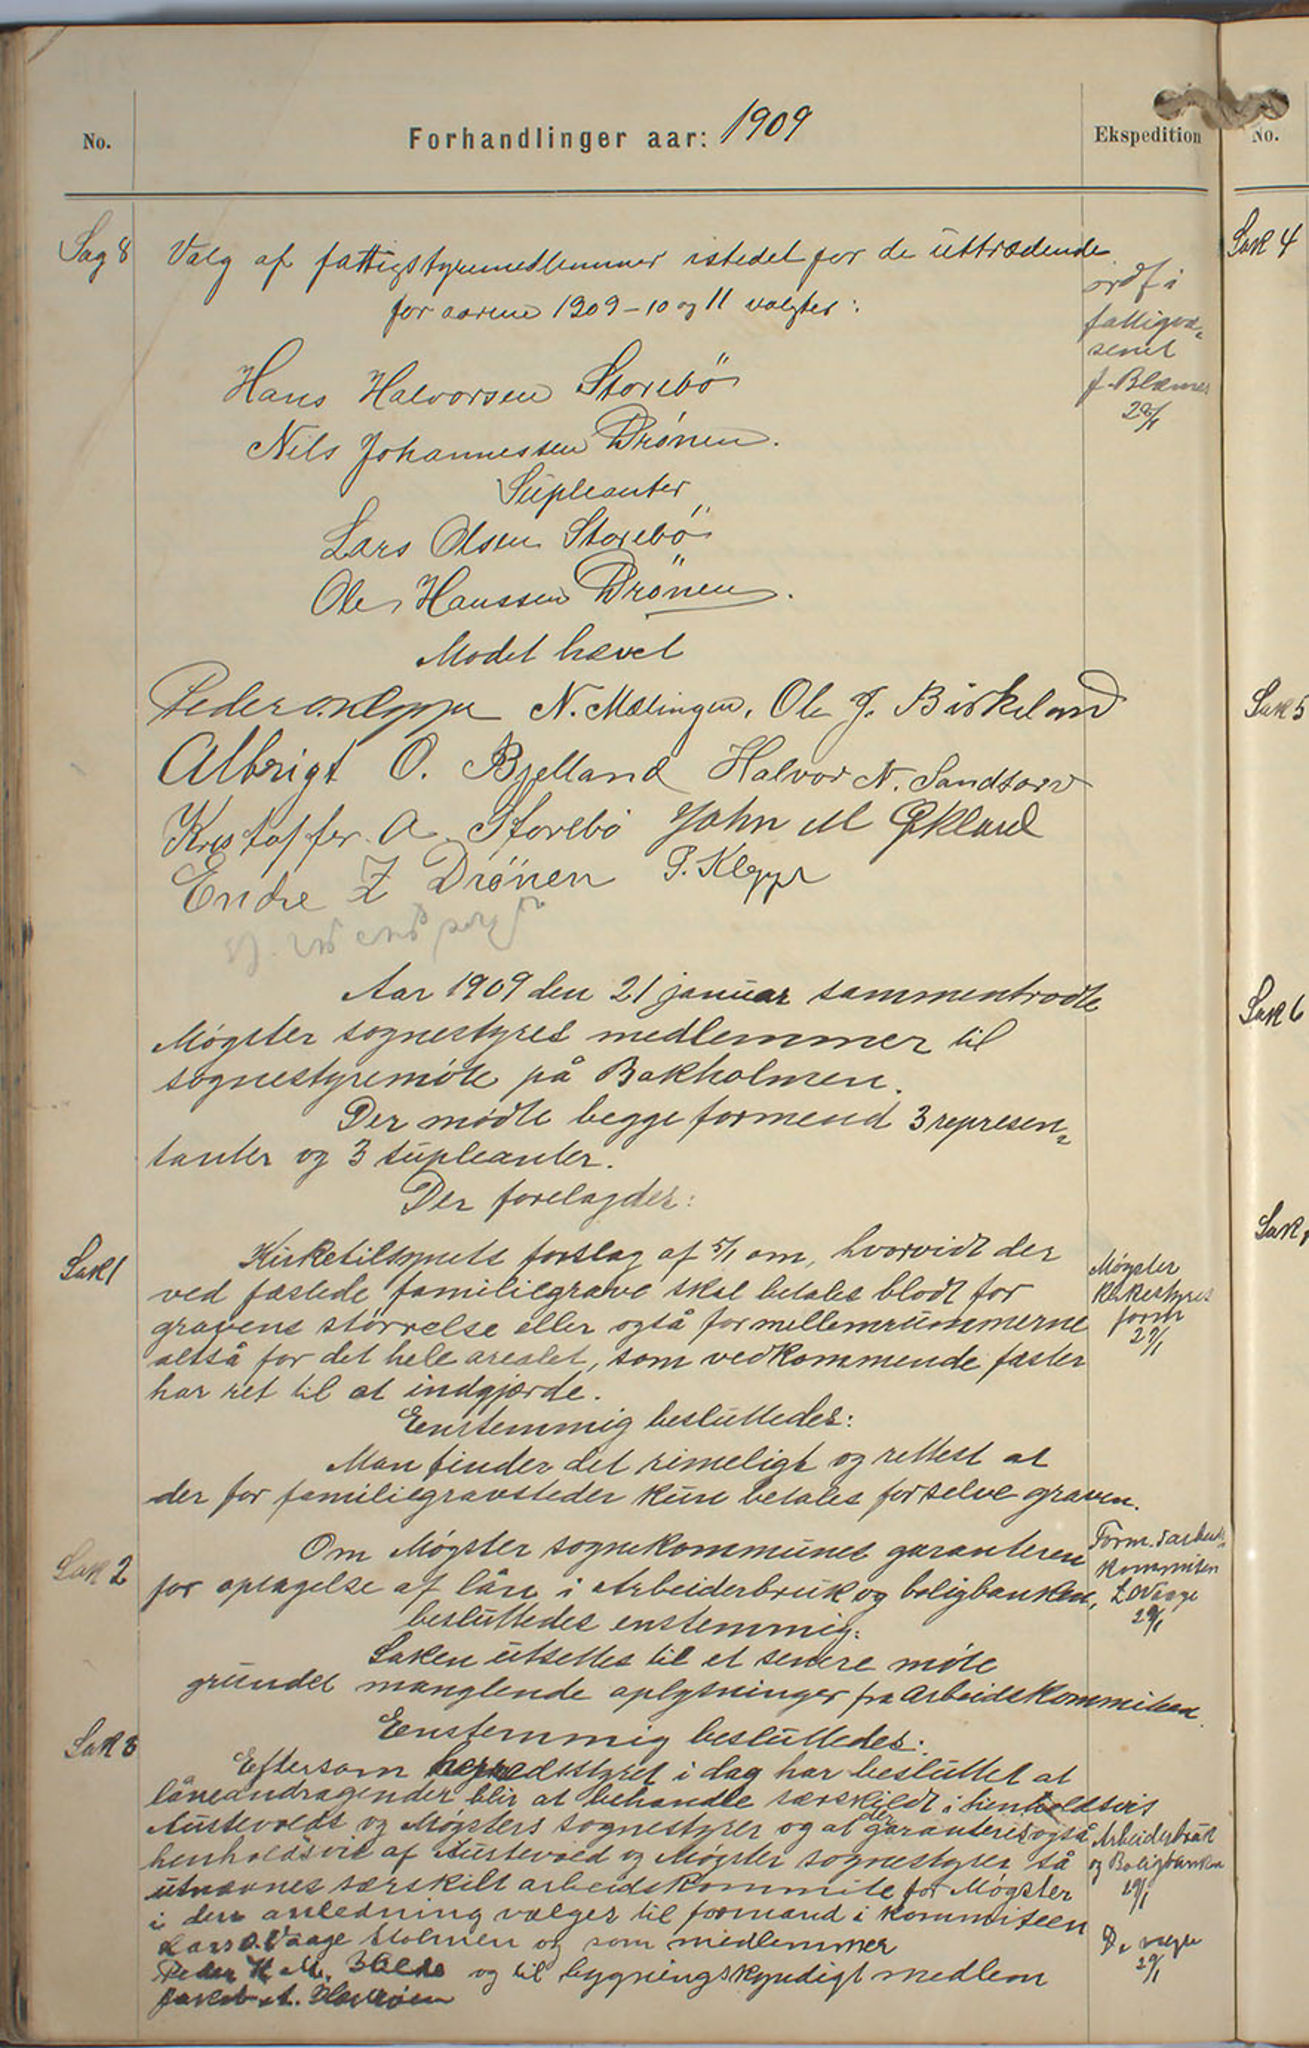 No.
Forhandlinger aar: 1909
Ekspedition
No.
Sag 8 Valg af fattigstyremedlemmer istedet for de uttrædende
for aarene 1909-10 og 11 valgtes:
ordf i
fattigvæ-
senet
22/1
Hans Halvorsen Storebö
Nils Johannessen Drónen.
Supleanter
Lars Olsen Storebö
Ole Hanssen Drönen.
Mødet hævet
N. Mælingen, Ole J. Birkeland
Albrigt O. Bjelland Halvor N. Sandtorv
Kristoffer A Storebö John M Økland
Endre Z Drönen P. Kleppe
Aar 1909 den 21 januar sammentrodte
Møgster sognestyres medlemmer til
sognestyremöte på Bakholmen.
Der mødte begge formend 3 represen-
tanter og 3 supleanter.
Der forelagdes:
Sak 1 Kirketilsynets forslag af 5/1 om, hvorvidt der
ved fæstede familiegrave skal betales blodt for
gravens störrelse eller også for mellemrummerne
altså for det hele arealet, som vedkommende fæster
har ret til at indgjærde.
Møgster
kirkestyres
form
29/1
Eenstemmig besluttedes:
Man finder det rimeligt og rettest at
der for familiegravsteder kun betales for selve graven.
Sak 2 Om Møgster sognekommunes garanteren
for optagelse af lån i Arbeiderbruk og boligbanken,
besluttedes enstemmig:
Form. i arbeids-
kommiteen
L O Vaage
29/1
Saken utsettes til et senere möte
grundet manglende oplysninger fra Arbeidskommiteen.
Sak 3 Eenstemmig besluttedes:
Eftersom herredsstyret i dag har besluttet at
låneandragender blir at behandle særskildt i henholdsvis
Austevolds og Møgsters sognestyrer og at der garanteres også
henholdsvis af Austevold og Møgster sognestyrer så
utnævnes særskilt arbeidskommite for Møgster
i den anledning vælges til formand i kommiteen
Lars O. Vaage Stolmen og som medlemmer
Peder H. M. og til bygningskyndigt medlem
Jakob A.
Arbeiderbruk
og Boligbanken
29/1
De valgte
29/1
Sak 4
Sak 5
Sak 6
Sak